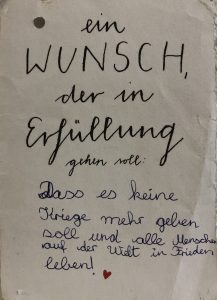 ein
WUNSCH,
der in
Erfüllung
gehen soll:
Dass es keine
Kriege mehr geben
soll und alle Menschen
auf der Welt in Frieden
leben!